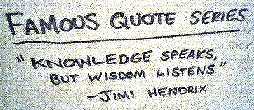 FAMOUS QUOTE SERIES
"KNOWLEDGE SPEAKS,
BUT WISDOM LISTENS"
-JIMI HENDRIX